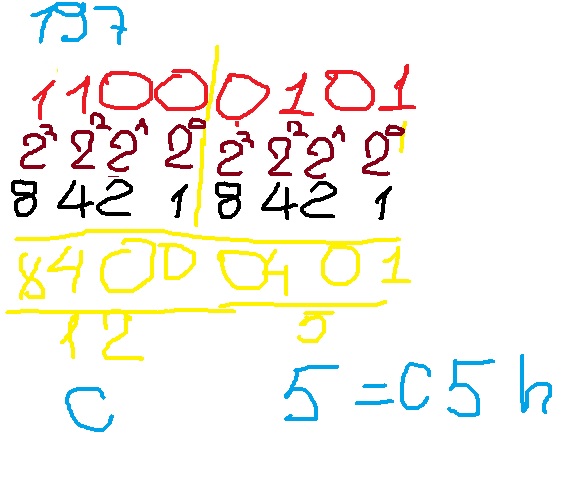 197
1 1 0 0 0 1 0 1
2³ 2² 2¹ 2⁰ 2³ 2² 2¹ 2⁰
8 4 2 1 8 4 2 1
8 4 0 0 0 4 0 1
12 5
C 5 = C5h